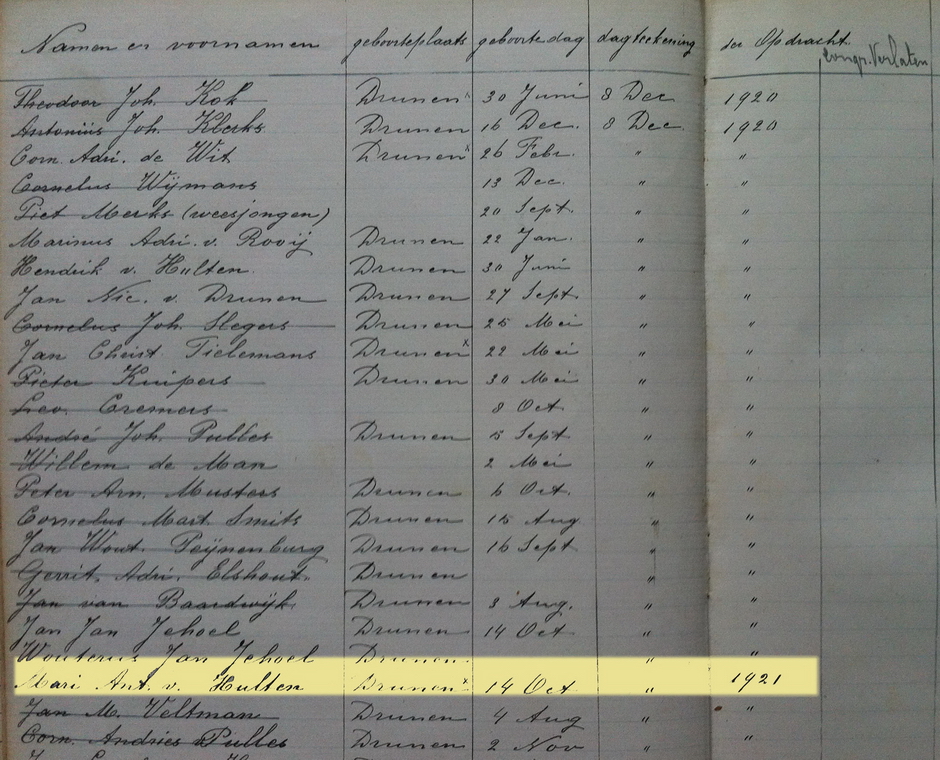 Namen en voornamen geboorteplaats geboortedag dagteekening der Opdracht. Congr. Verlaten
Theodoor Joh. Kok Drunen x 30 Juni 8 Dec 1920
Antonius Joh. Klerks Drunen 16 Dec. 8 Dec. 1920
Corn. Adri. de Wit Drunen x 26 Febr. " "
Cornelus Wijmans 13 Dec. " "
Piet Merks (weesjongen) 20 Sept. " "
Marinus Adri. v. Rooij Drunen 22 Jan. " "
Hendrik v. Hulten. Drunen 30 Juni " "
Jan Nic. v. Drunen Drunen 27 Sept. " "
Cornelus Joh. Slegers Drunen 25 Mei " "
Jan Christ Tielemans Drunen x 22 Mei " "
Pieter Kuipers Drunen 30 Mei " "
Leo. Cremers 8 Oct. " "
André Joh. Pulles Drunen 5 Sept " "
Willem de Man 2 Mei " "
Peter Arn. Musters Drunen 6 Oct. " "
Cornelus Mart. Smits Drunen 15 Aug " "
Jan Wout. Peijnenburg Drunen 16 Sept " "
Gerrit. Adri. Elshout. Drunen " "
Jan van Baardwijk. Drunen 3 Aug. " "
Jan Jan Jehoel Drunen 14 Oct " "
Wouterus Jan Jehoel Drunen. " "
Mari Ant. v. Hulten Drunen x 14 Oct " 1921
Jan M. Veltman Drunen 4 Aug " "
Corn. Andries Pulles Drunen 2 Nov " "